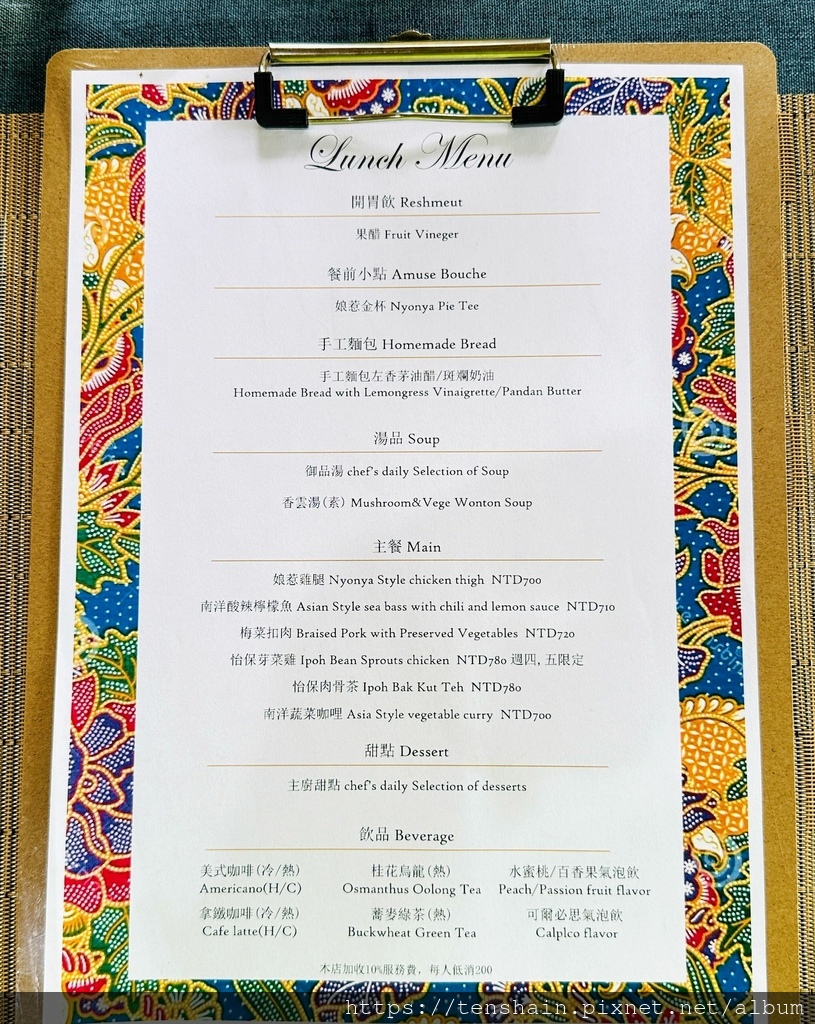 Lunch Menu
開胃飲 Reshmeut
果醋 Fruit Vineger
餐前小點 Amuse Bouche
娘惹金杯 Nyonya Pie Tee
手工麵包 Homemade Bread
手工麵包左香茅油醋/斑斕奶油
Homemade Bread with Lemongress Vinaigrette/Pandan Butter
湯品 Soup
御品湯 chef's daily Selection of Soup
香雲湯(素) Mushroom&Vege Wonton Soup
主餐 Main
娘惹雞腿 Nyonya Style chicken thigh NTD700
南洋酸辣檸檬魚 Asian Style sea bass with chili and lemon sauce NTD710
梅菜扣肉 Braised Pork with Preserved Vegetables NTD720
怡保芽菜雞 Ipoh Bean Sprouts chicken NTD780 週四,五限定
怡保肉骨茶 Ipoh Bak Kut Teh NTD780
南洋蔬菜咖哩 Asia Style vegetable curry NTD700
甜點 Dessert
主廚甜點 chef's daily Selection of desserts
飲品 Beverage
美式咖啡(冷/熱) 桂花烏龍(熱) 水蜜桃/百香果氣泡飲
Americano(H/C) Osmanthus Oolong Tea Peach/Passion fruit flavor
拿鐵咖啡(冷/熱) 蕎麥綠茶(熱) 可爾必思氣泡飲
Cafe latte(H/C) Buckwheat Green Tea Calplco flavor
本店加收10%服務費，每人低消200
https://tenshain.pixnet.net/album